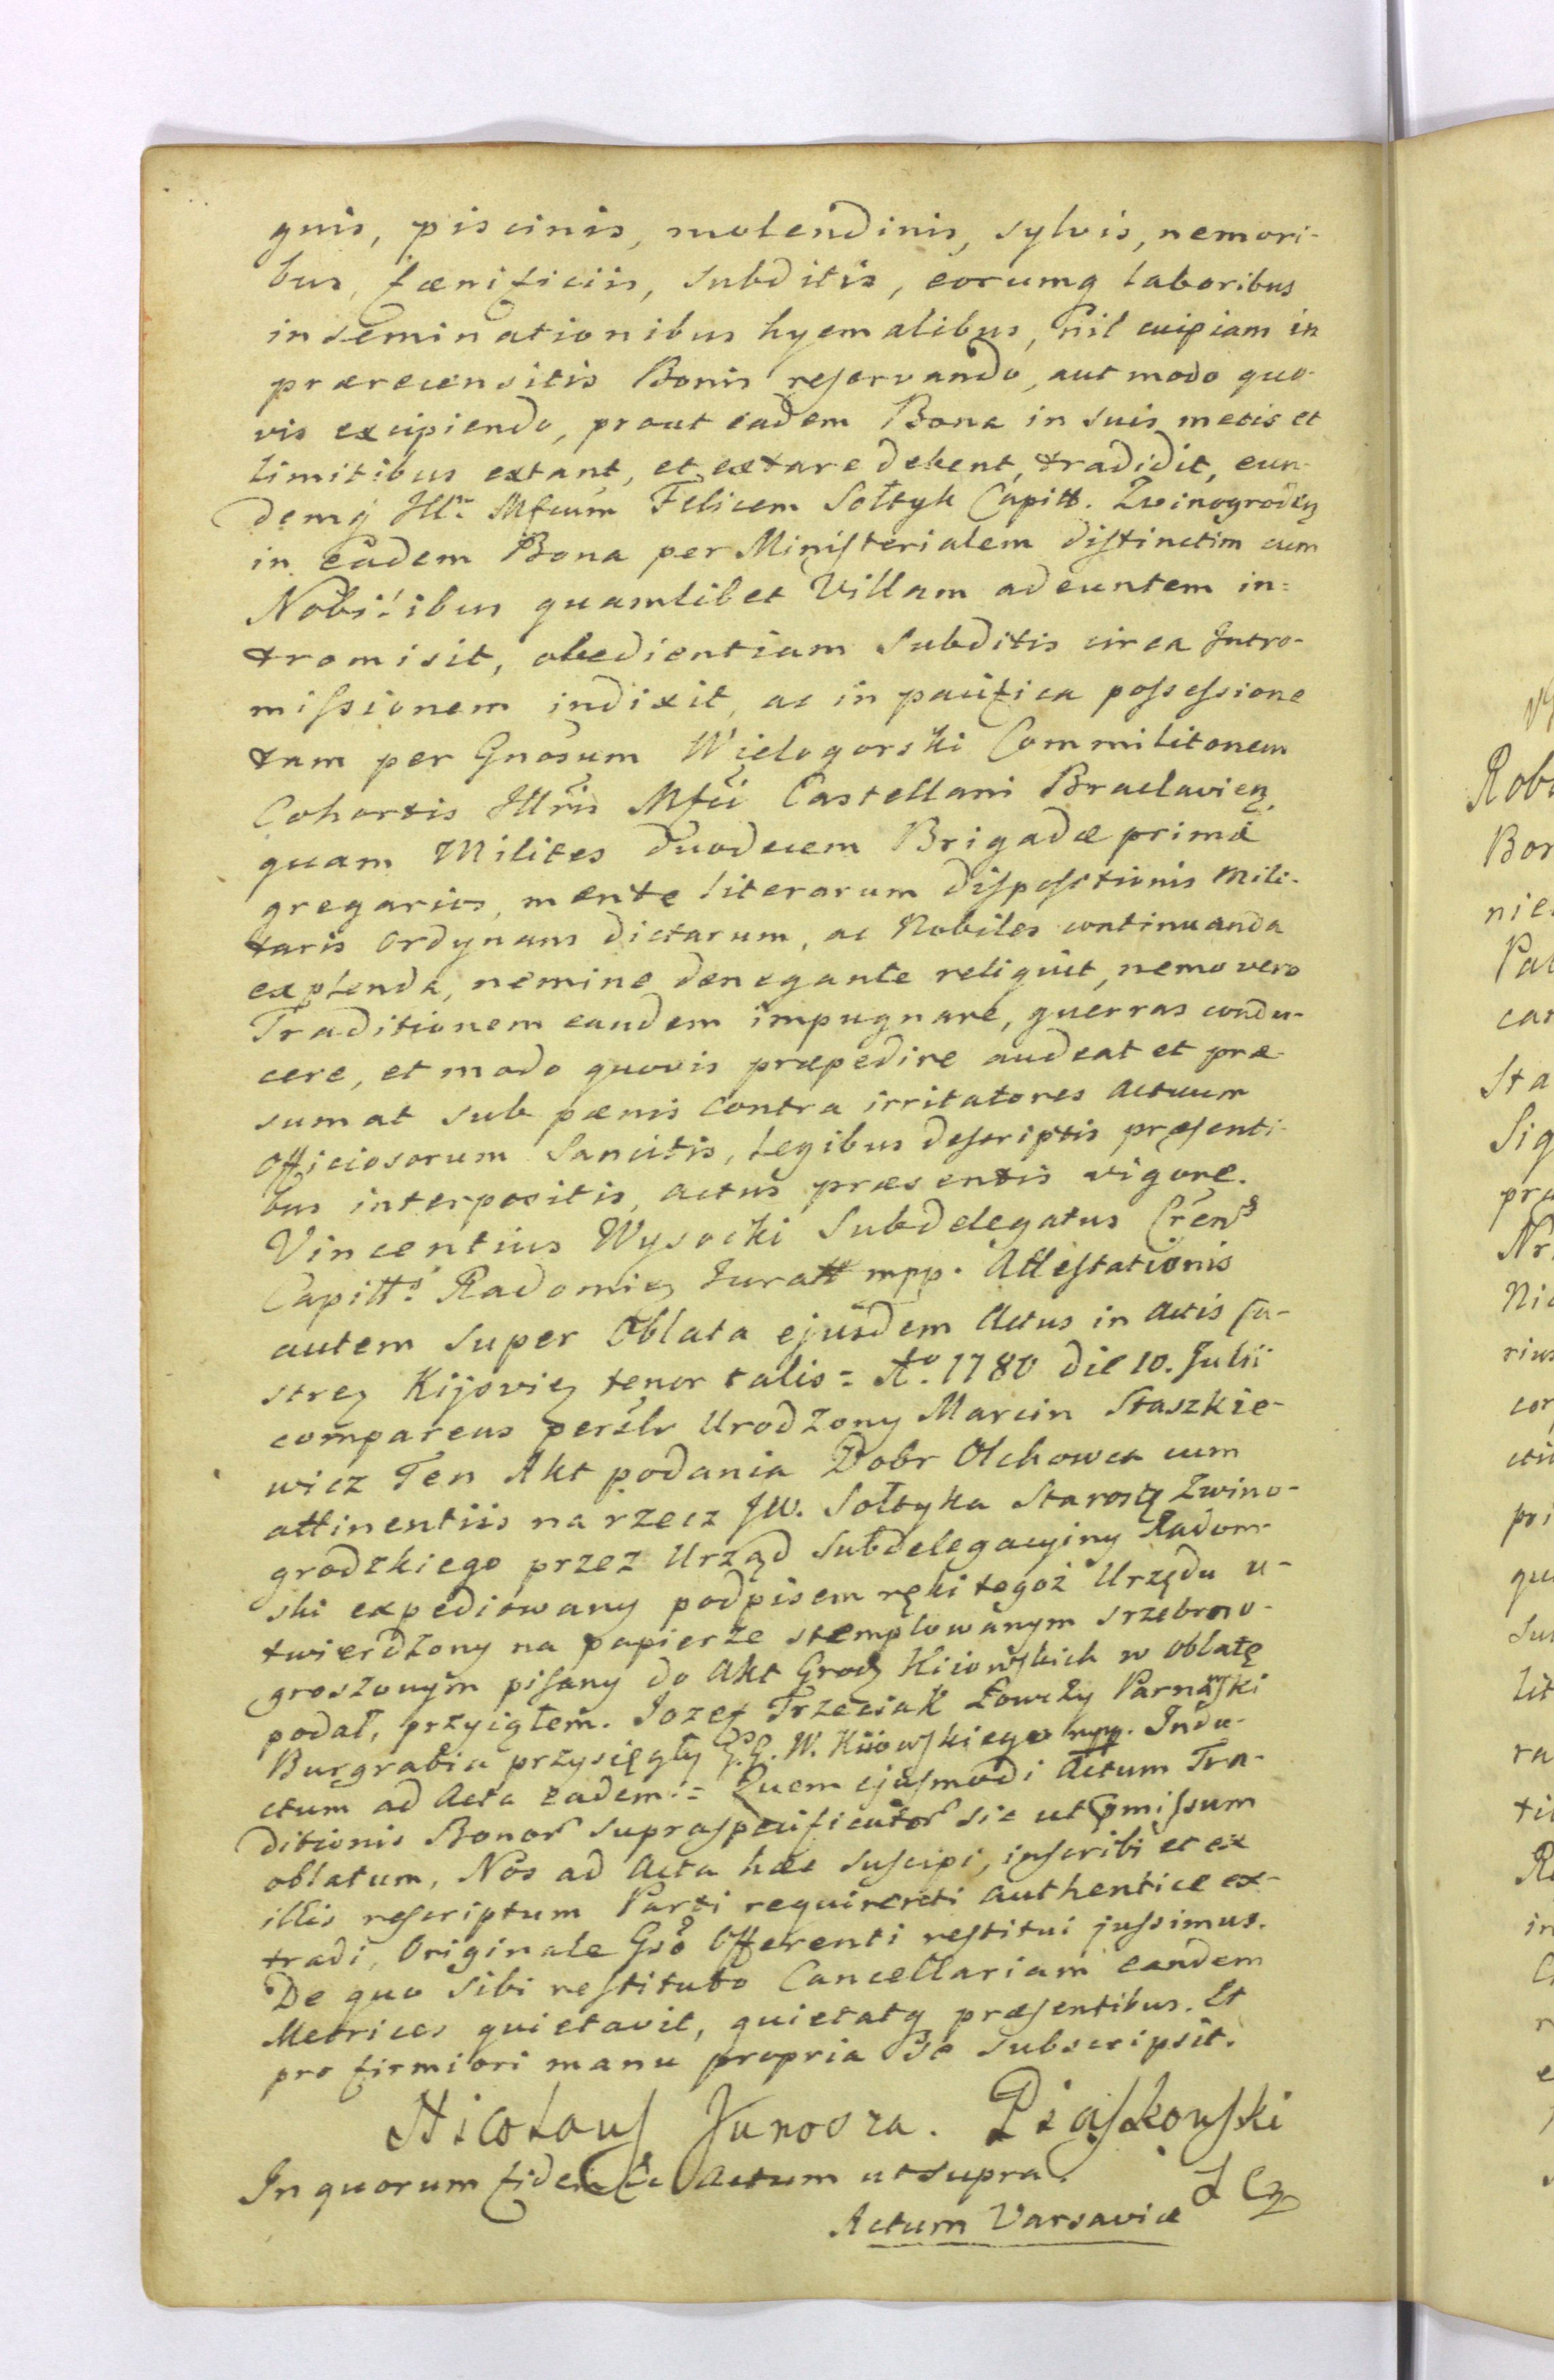 gnis, piscinis, molendinis, sylvis, nemori-
bus, fænificiis, subditis, eorumq laboribus
inseminationibus hyemalibus, nil cuipiam in
prærecensitis Bonis reservando, aut modo quo-
vis excipiendo, prout eadem Bona in suis metis et
limitibus extant, et extare debent, tradidit, eun-
demq Illr. Mfcum Felicem Sołtyk Capitt. Zwinogrodeñ
in eadem Bona per Ministerialem distinctim cum
Nobilibus quamlibet Villam adeuntem in=
tromisit, obedientiam Subditis circa Intro-
missionem indixit, ac in pacifica possessione
tam per Gnosum Wielogorski Commilitonem
Cohortis Illris Mfci Castellani Braclavieñ
quam Milites duodecem Brigadæ primæ
gregarios, mente literarum dispositionis mili-
taris Ordynans dictarum, ac Nobiles continuanda
explenda, nemine denegante reliquit, nemo vero
Traditionem eandem impugnare, guerras condu-
cere, et modo quovis præpedire audeat et præ-
sumat sub pænis contra irritatores actuum
officiosorum Sancitis, Legibus descriptis præsenti-
bus interpositis, actus præsentis vigore.
Vincentius Wysocki Subdelegatus Cren
Capitts Radomieñ Juratt mpp. Attestationis
autem super Oblata ejusdem Actus in Actis Ca-
streñ Kijovieñ tenor talis = Ao. 1780 die 10. Julii
comparens perslr Urodzony Marcin Staszkie-
wicz Ten Akt podania Dobr Olchowca cum
attinentiis na rzecz JW. Sołtyka Starosty Zwino-
grodzkiego przez Urząd Subdelegacyiny Radom-
ski expediowany podpisem ręki tegoż Urzędu u-
twierdzony na papierze stemplowanym srzebrno-
groszowym pisany do Akt Grodz Kiiowskich w oblatę
podał, przyiąłem. Jozef Trzeciak Łowczy Parnawski
Burgrabia przysięgły G. G. W. Kiiowskiego mpp. Indu-
ctum ad Acta eadem := Quem ejusmodi Actum Tra-
ditionis Bonor supraspecificator sic ut pmissum
oblatum, Nos ad Acta hæc suscipi, inscribi et ex
illis rescriptum Parti requirenti authentice ex-
tradi, Originale Gso Offerenti restitui jussimus.
De quo sibi restituto Cancellariam eandem
Metrices quietavit, quietatq præsentibus. Et
pro firmiori manu propria Se subscripsit.
Nicolaus Junosza. Piaskowski
In quorum fidem &c Actum ut supra.
Actum Varsaviæ